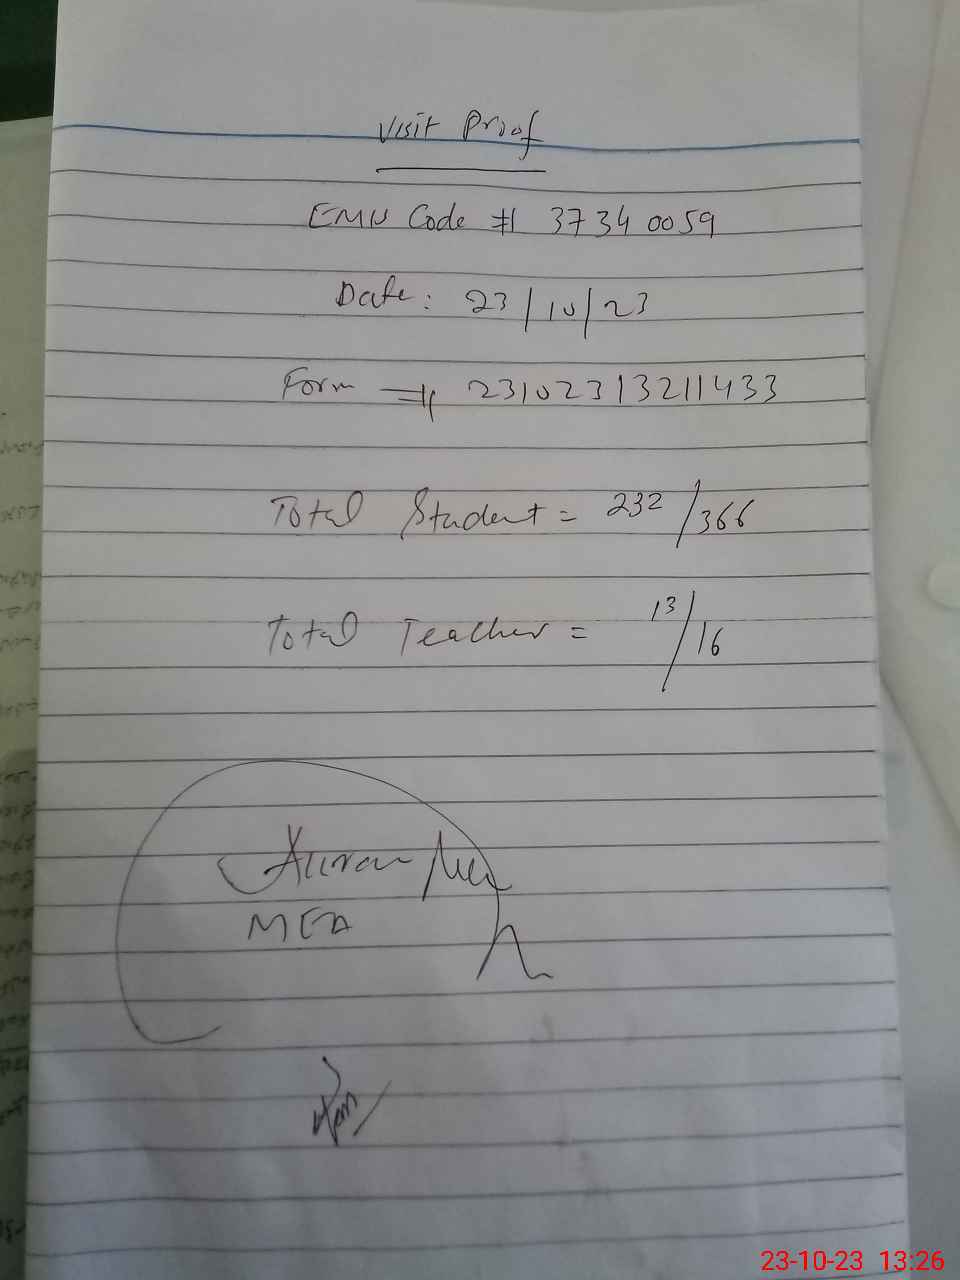 Visit Proof
EMIS Code # 37340059
Date: 23/10/23
Form # 23102313211433
Total Student = 232/366
Total Teacher = 13/16
MEA
23-10-23 13:26